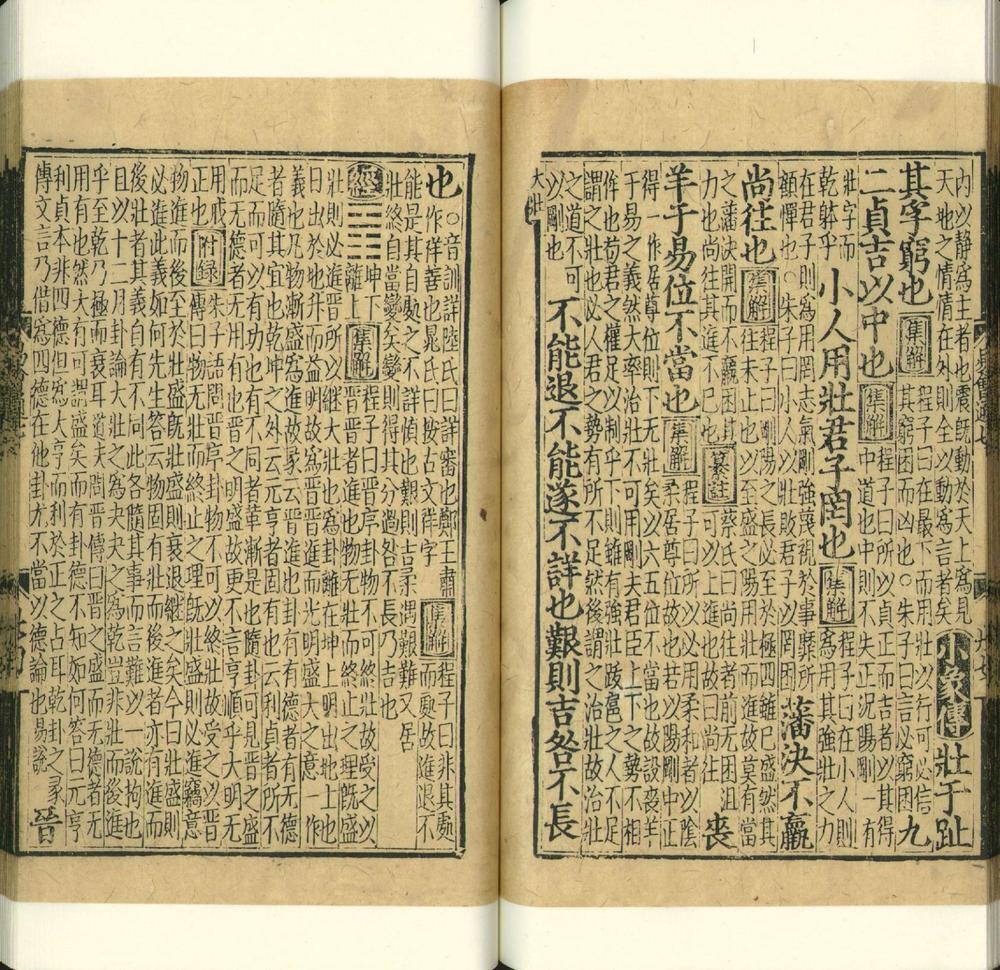 內以靜爲主者也震旣動於天上爲見
天地之情情在外則全以動爲言者矣
小象傳 壯于趾
其孚窮也 集解
程子曰在最下而用壯以行可必信
其窮困而凶也○朱子曰言必窮困
九
二貞吉以中也 集解
程子曰所以貞正而吉者以其得
中道也中則不失正況陽剛一有
壯字而
乾躰乎
小人用壯君子罔也 集解
程子曰在小人則
爲用其強壯之力
在君子則爲用罔志氣剛強蔑視於事靡所
顧憚也○朱子曰小人以壯敗君子以罔困
藩決不羸
尚往也 集解
程子曰剛陽之長必至於極四雖已盛然其
往未止也以至盛之陽用壯而進故莫有當
之藩決開而不羸困其
力也尚往其進不已也
纂註
蔡氏曰尚往者前无困沮
可以上進也故曰尚往
喪
羊于易位不當也 集解
程子曰所以必用柔和者以陰
柔居尊位故也若以陽剛中正
得一作居尊位則下无壯矣以六五位不當也故設喪羊
于易之義然大率治壯不可用剛夫君臣上下之勢不相
侔也苟君之權足以制乎下則雖有強壯跋扈之人不足
謂之壯也必人君之勢有所不足然後謂之治壯故治壯
之道不可
以剛也
不能退不能遂不詳也艱則吉咎不長
大壯
也
○音訓詳陸氏曰詳審也鄭王肅
作祥善也晁氏曰按古文祥字
集解
程子曰非其處
而處故進退不
能是其自處之不詳愼也艱則吉柔遇艱難又居
壯終自當變矣變則得其分過咎不長乃吉也
經
坤下
離上
集解
程子曰晉序卦物不可終壯故受之以
晉晉者進也物无壯而終止之理旣盛
壯則必進晉所以繼大壯也爲卦離在坤上明出地上也
日出於地升而益明故爲晉晉進而光明盛大之意一作
義也凡物漸盛爲進故彖云晉進也卦有有德者有无德
者隨其宜也乾坤之外云元亨者固有也云利貞者所不
足而可以有功也不同者革漸是也隨卦可見晉之盛
而无德者无用有也晉之明盛故更不言亨順乎大明无
用戒
正也
附錄
朱子語問晉序卦物不可以終壯故受之以晉
傳曰物无壯而終止之理旣壯盛則必進竊意
物進而後至於壯盛旣壯盛則衰退繼之矣今曰壯盛則
必進此義如何先生答云物固有壯而後進者亦有進而
後壯者其義自不同此各隨其事而言難以一說拘也
且以十二月卦論大壯之爲夬夬之爲乾豈非壯而後進
乎至乾乃極而衰耳道夫問晉傳曰晉之盛而无德者无
用有也然大有可謂盛矣而有卦德不知如何答曰元亨
利貞本非四德但爲大亨而利於正之占耳乾卦之彖
傳文言乃借爲四德在他卦尤不當以德論也易說
晉